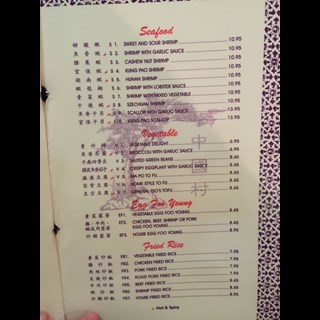 Seafood
甜酸蝦 S 1. SWEET AND SOUR SHRIMP 10.95
魚香蝦 S 2. SHRIMP WITH GARLIC SAUCE 10.95
腰果蝦 S 3. CASHEW NUT SHRIMP 10.95
宮保蝦 S 4. KUNG PAO SHRIMP 10.95
湖南蝦 S 5. HUNAN SHRIMP 10.95
蝦龍糊 S 6. SHRIMP WITH LOBSTER SAUCE 10.95
青菜蝦 S 7. SHRIMP WITH MIXED VEGETABLE 10.95
干燒蝦 S 8. SZECHUAN SHRIMP 10.95
魚香干貝 S 9. SCALLOP WITH GARLIC SAUCE 13.95
宮保干貝 S10. KUNG PAO SCALLOP 13.95
Vegetable
V 1. VEGETABLE DELIGHT
V 2. BROCCOLI WITH GARLIC SAUCE
干扁四季豆 V 3. SAUTEED GREEN BEANS
V 4. CRISPY EGGPLANT WITH GARLIC SAUCE 8.45
麻婆豆腐 V 5. MA PO TO FU 8.45
家常豆腐 V 6. HOME STYLE TO FU 8.45
左宗豆腐 V 7. GENERAL TSO'S TOFU 8.45
中國村
Egg Foo Young
青菜蓉蛋 EF1. VEGETABLE EGG FOO YOUNG 8.45
EF2. CHICKEN, BEEF, SHRIMP OR PORK
EGG FOO YOUNG
EF3. HOUSE EGG FOO YOUNG
Fried Rice
青菜炒飯 FR1. VEGETABLE FRIED RICE 7.95
雞炒飯 FR2. CHICKEN FRIED RICE 7.95
肉絲炒飯 FR3. PORK FRIED RICE 7.95
叉燒炒飯 FR4. ROAST PORK FRIED RICE
牛炒飯 FR5. BEEF FRIED RICE
蝦炒飯 FR6. SHRIMP FRIED RICE
什錦炒飯 FR7. HOUSE FRIED RICE
Hot & Spicy